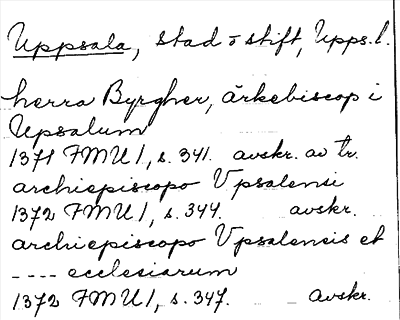 Uppsala, stad o stift, Upps.l.
herra Byrgher, ärkebiscop i
Upsalum
1371 FMU 1, s. 341. avskr. av tr.
archiepiscopo Vpsalensi
1372 FMU 1, s. 344. avskr.
archiepiscopo Vpsalensis et
---- ecclesiarum
1372 FMU 1, s. 347. avskr.